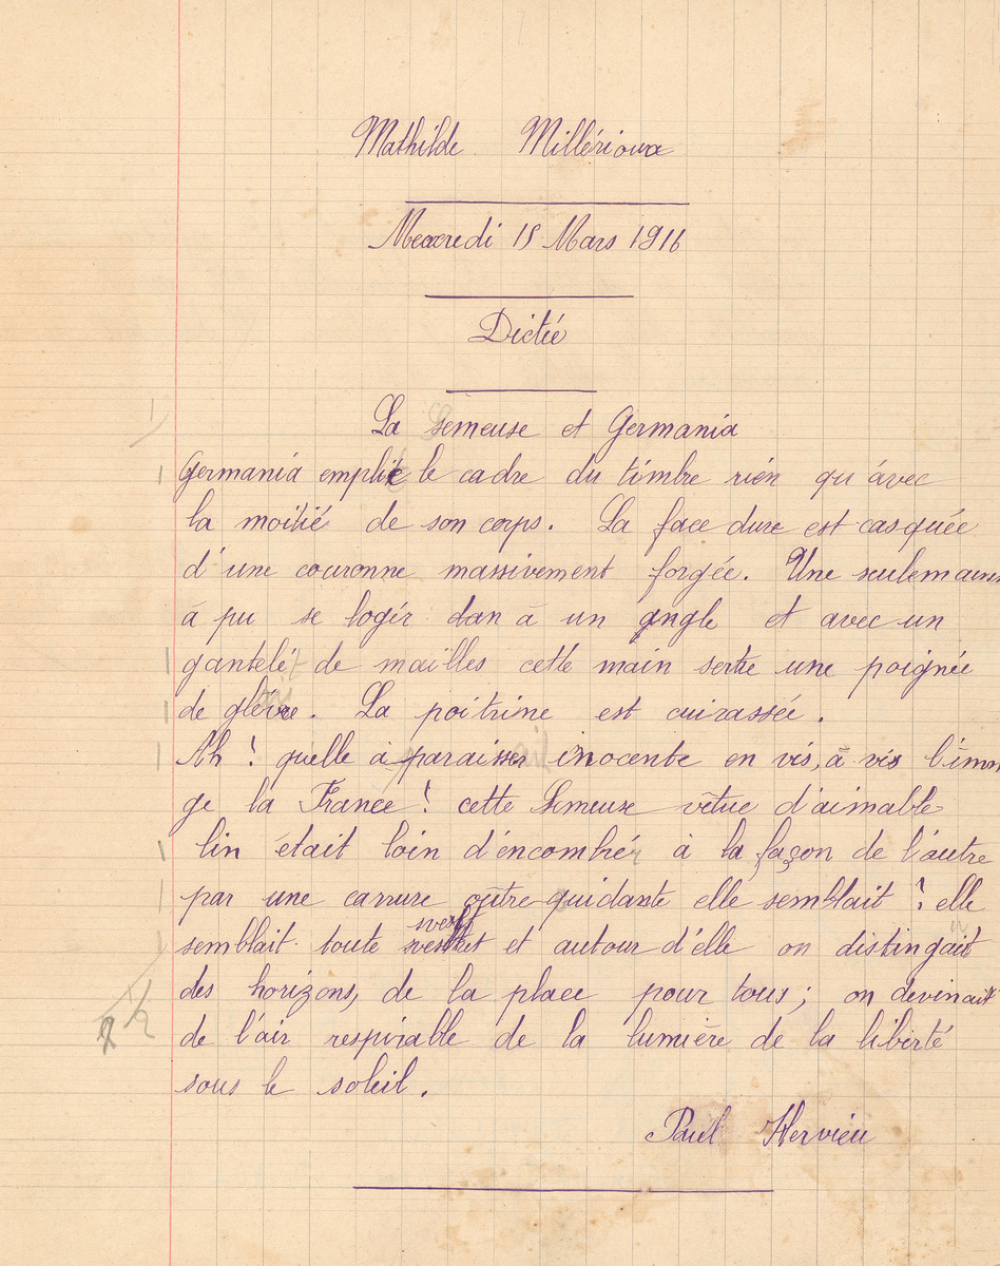 Mathilde Millérioux
Mercredi 15 Mars 1916
Dictée
La Semeuse et Germania
Germania emplit le cadre du timbre rien qu'avec
la moitié de son corps. La face dure est casquée
d'une couronne massivement forgée. Une seulemain
à pu se logér dan à un angle et avec un
gantelé de mailles cette main serte une poignée
de glévre. La poitrine est cuirassée.
Ah ! quelle à paraisser inocente en vis, à vis l'ima
ge la France ! cette Semeuse vêtue d'aimable
lin était loin d'encombrér à la façon de l'autre
par une carrure outre-quidante elle semblait ! elle
svelt
semblait toute et autour d'elle on distingait
des horizons, de la place pour tous ; on devinait
de l'air respirable de la lumière de la liberté
sous le soleil.
Paul Hervieu